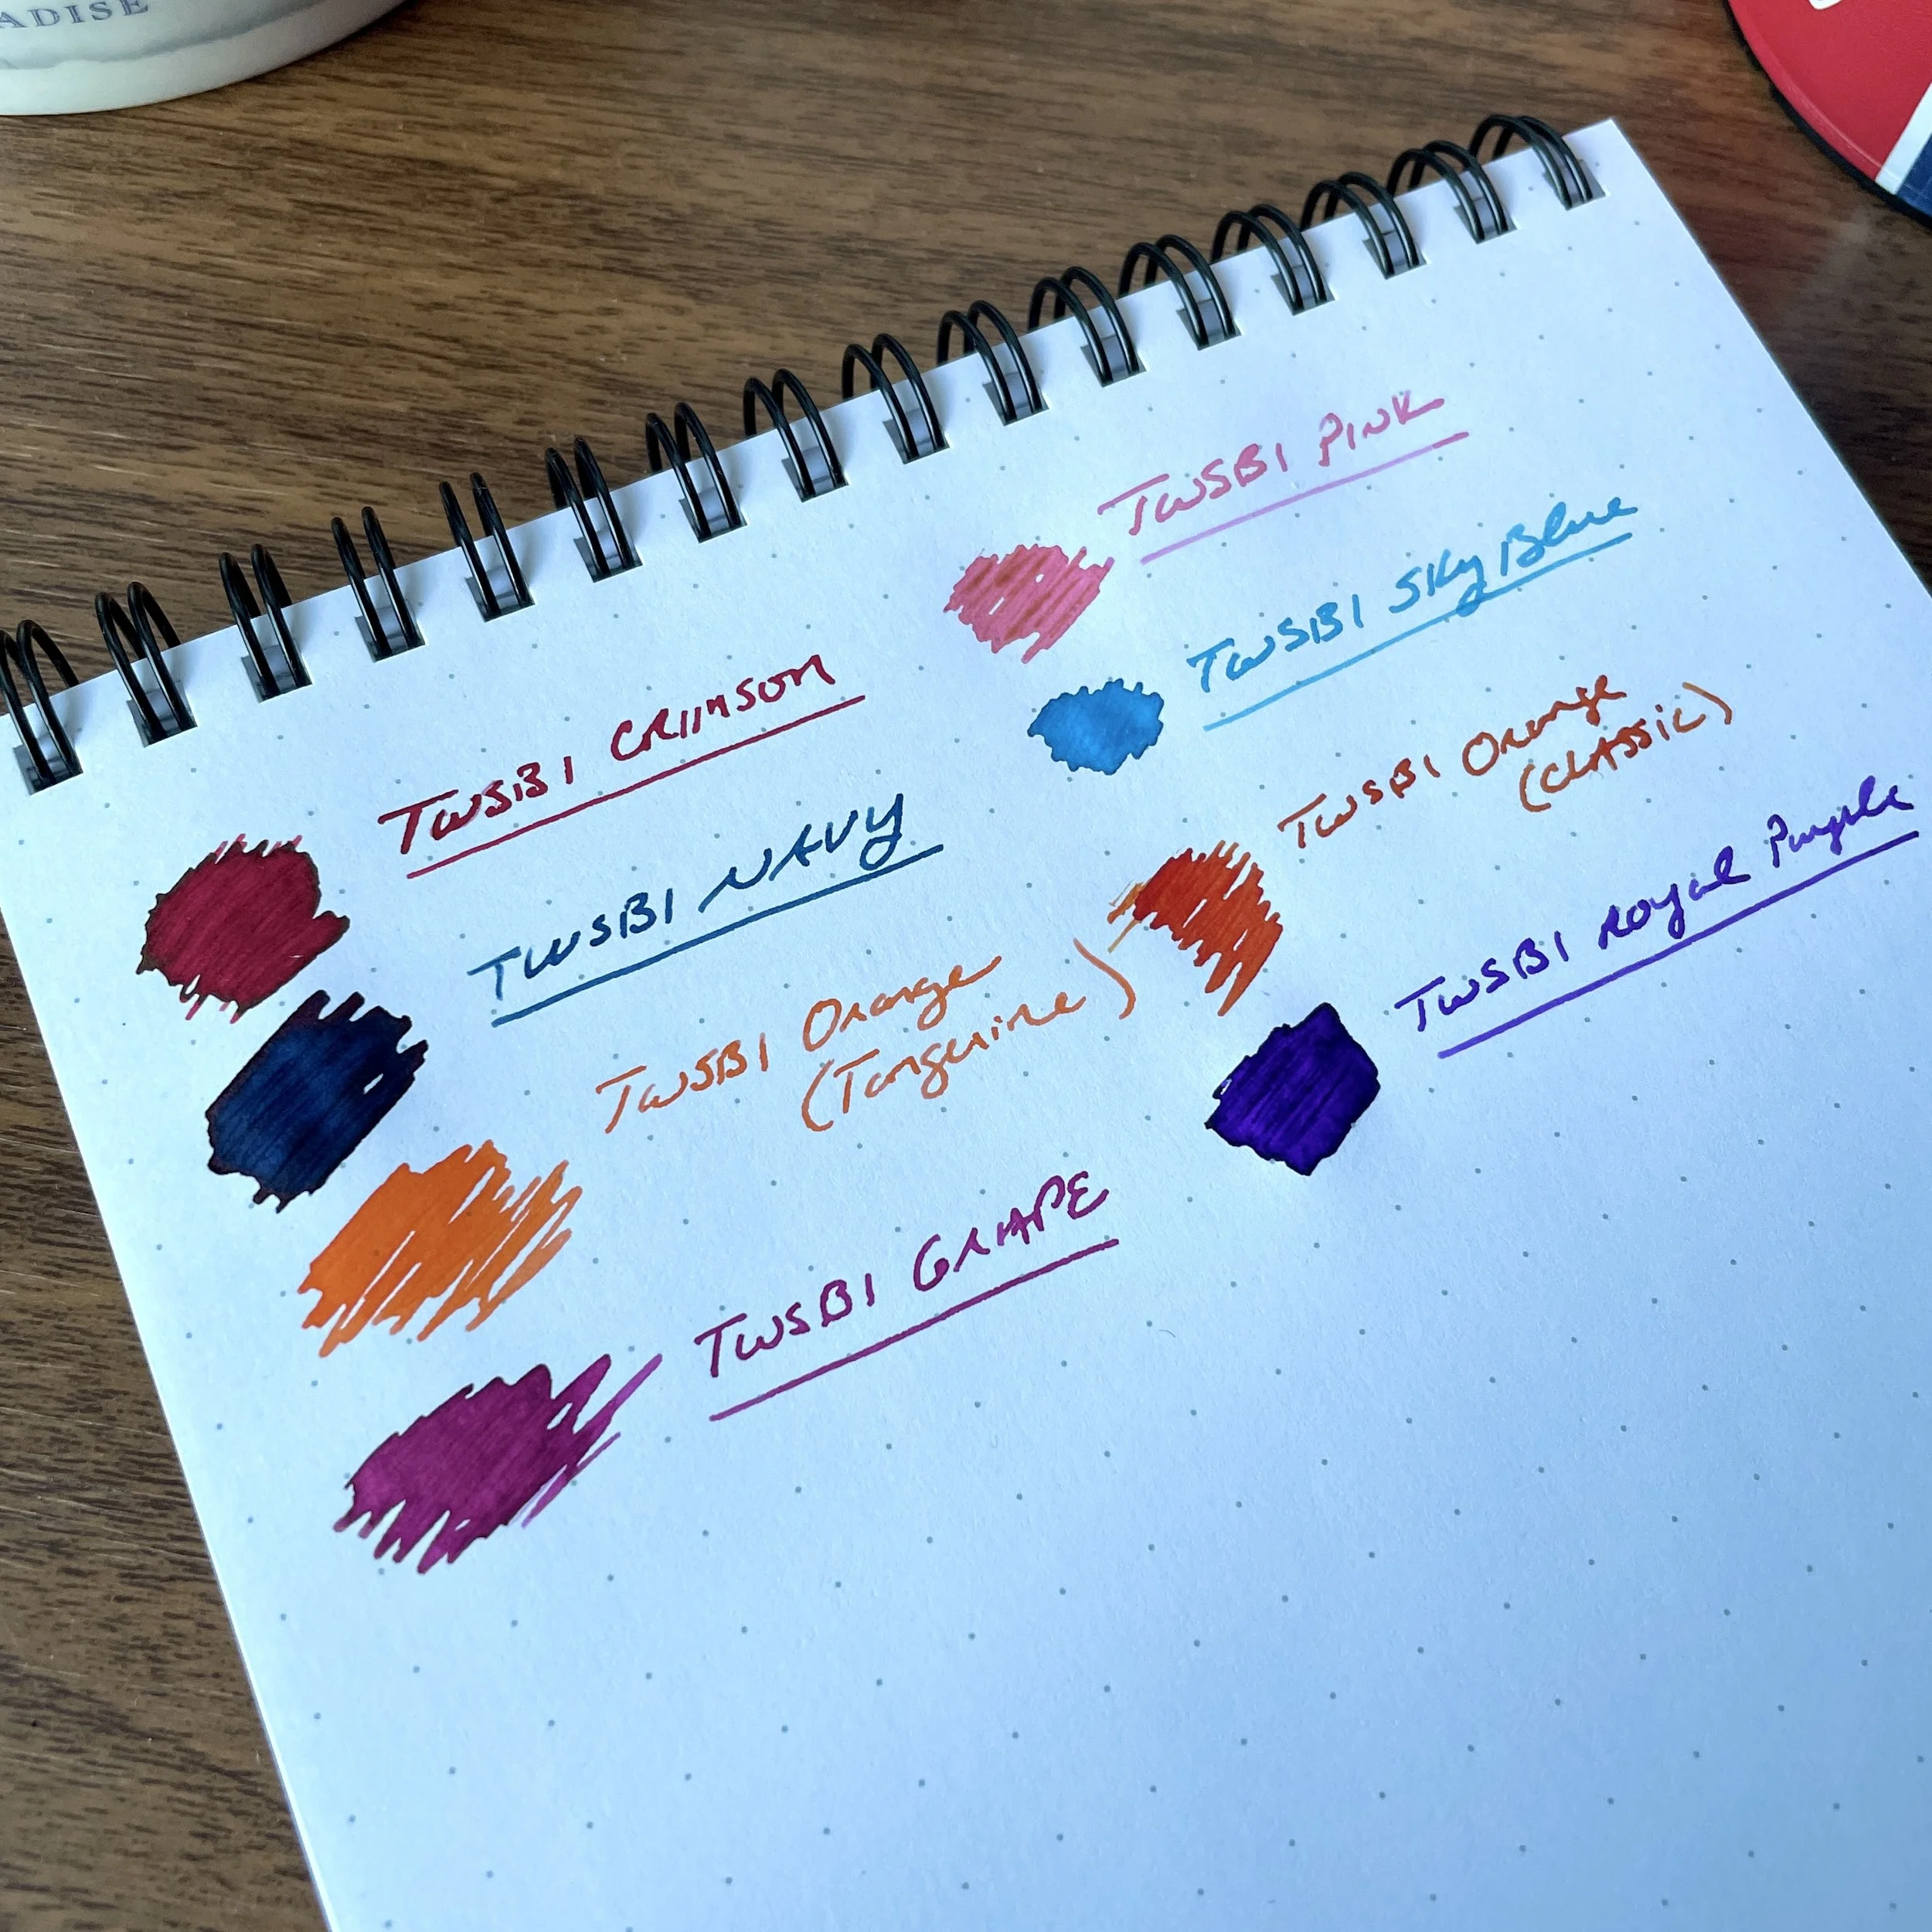 ADISE
TWSBI CRIMSON
TWSBI NAVY
TWSBI Orange
(Tangerine)
TWSBI GRAPE
TWSBI PINK
TWSBI SKy Blue
TWSBI Orange
(CLASSIC)
TWSBI ROyal Purple